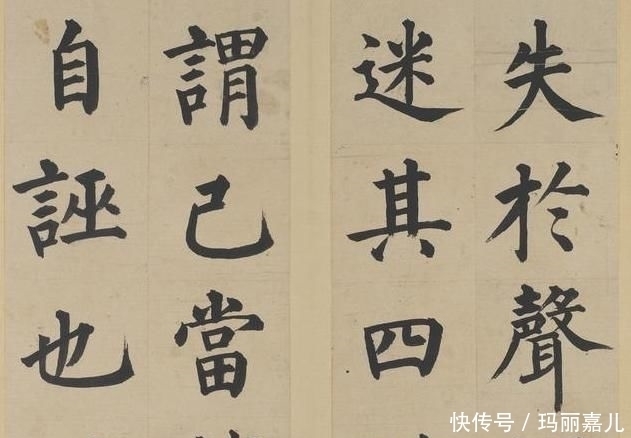 失於聲
迷其四
謂己當
自誣也
快传号 / 玛丽嘉儿